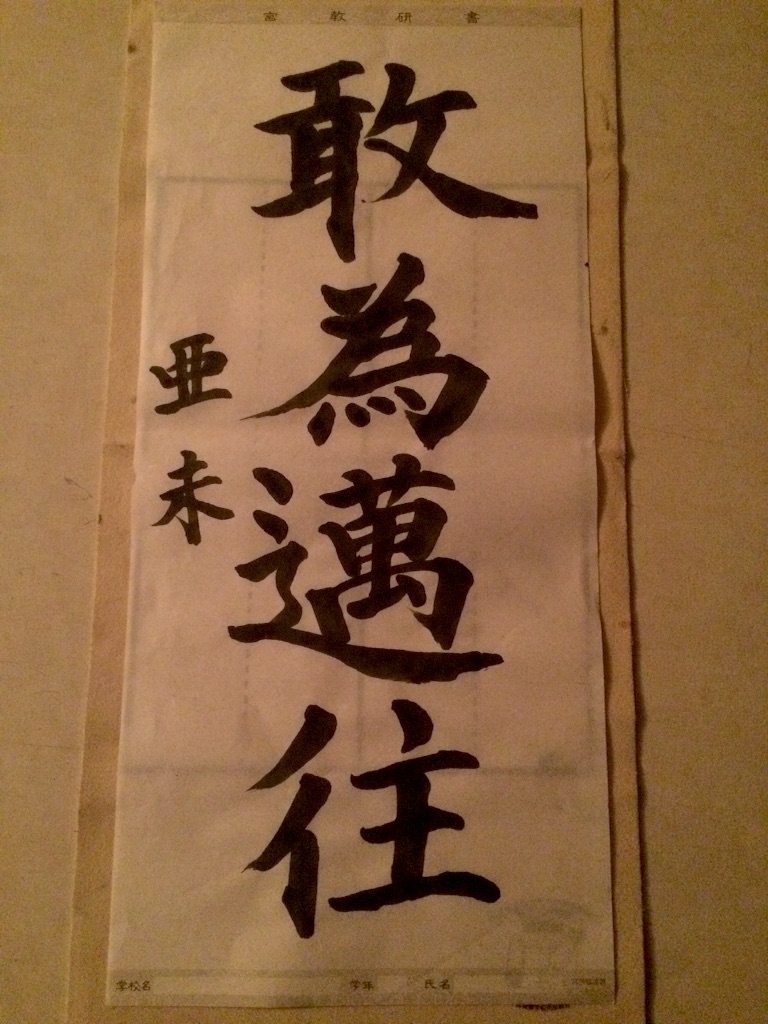 宮教研書
敢為邁往
亜未
学校名 学年 氏名